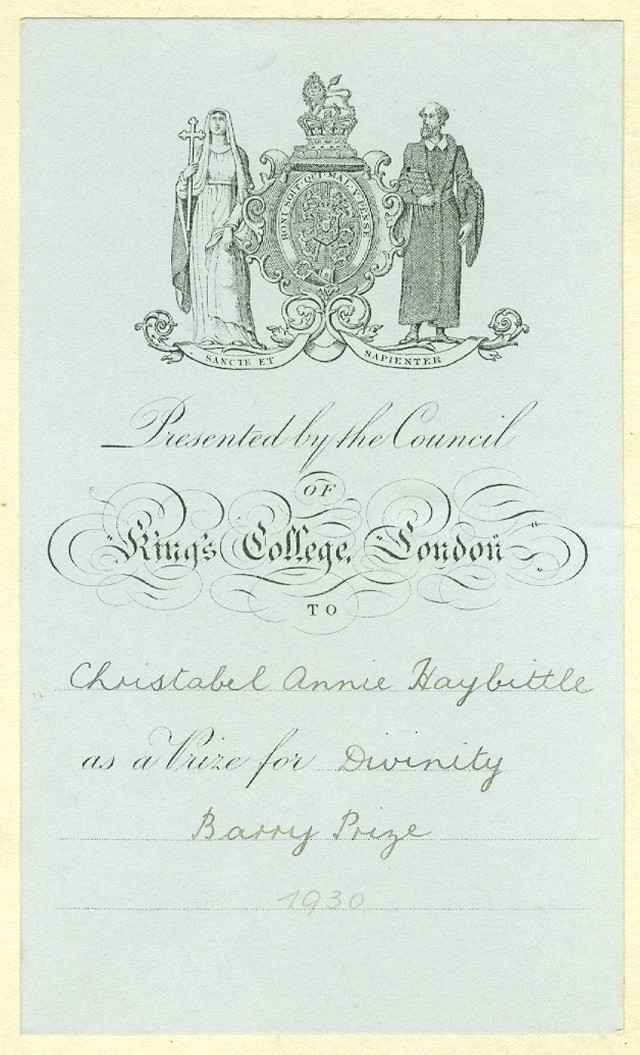 HONI SOIT QUI MAL Y PENSE
SANCTE ET SAPIENTER
Presented by the Council
OF
King's College, London
TO
Christabel Annie Haybittle
as a Prize for Divinity
Barry Prize
1930